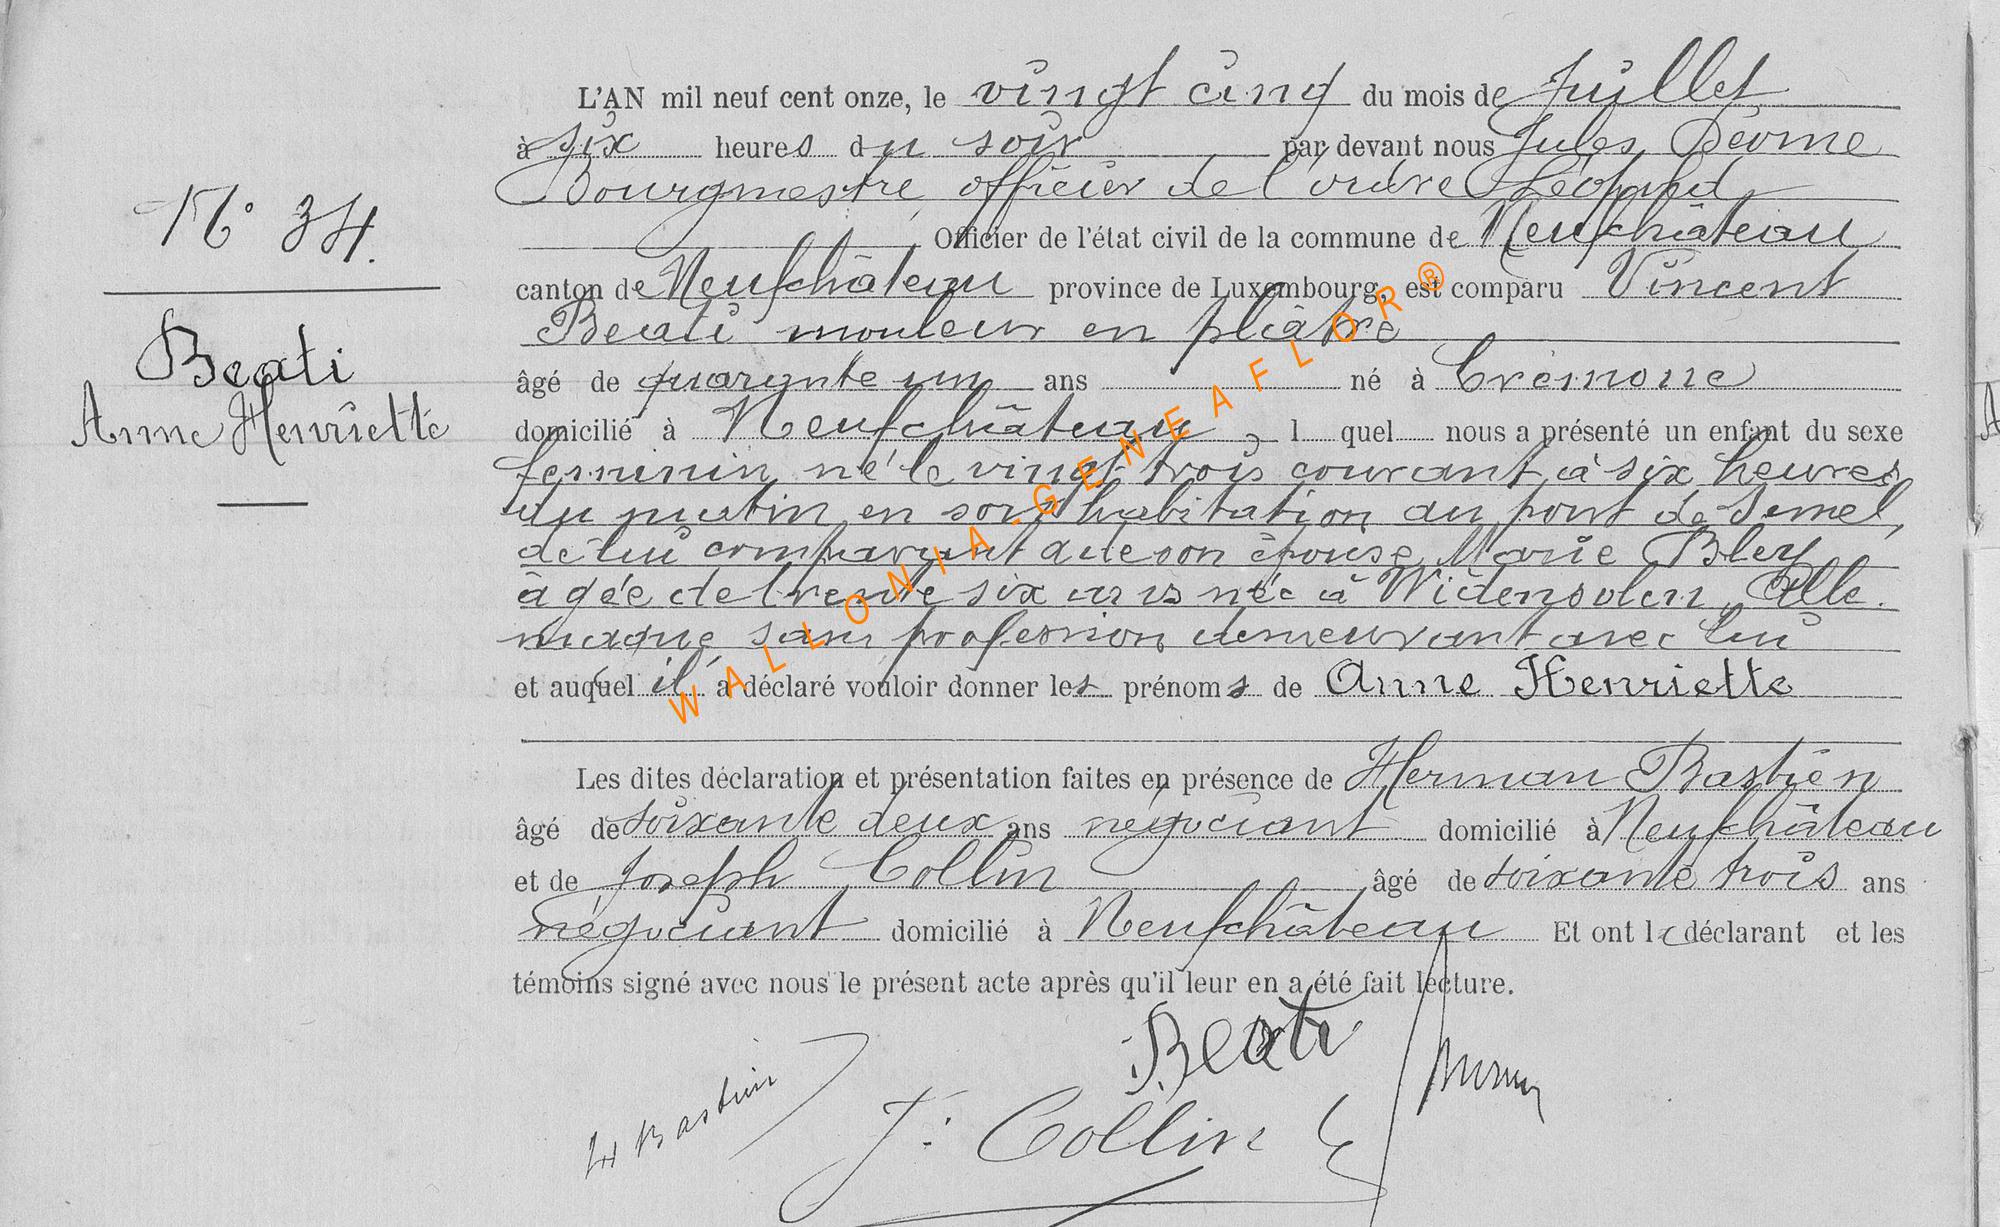 L'AN mil neuf cent onze, le vingt cinq du mois de Juillet
à six heures du soir par devant nous Jules Déome
Bourgmestre, officier de l'ordre Léopold
N° 34.
Officier de l'état civil de la commune de Neufchâteau
canton de Neufchâteau province de Luxembourg, est comparu Vincent
Beati mouleur en plâtre
Beati
âgé de quarante un ans né à Crémone
Anne Henriette
domicilié à Neufchâteau, lequel nous a présenté un enfant du sexe
féminin né le vingt trois courant à six heures
du matin en son habitation au pont de Semel,
de lui comparant et de son épouse Marie Bley
âgée de trente six ans née à Widensolen, Alle
magne, sans profession demeurant avec lui
et auquel il a déclaré vouloir donner les prénoms de Anne Henriette
WALLONIA-GENEAFLOR®
Les dites déclaration et présentation faites en présence de Herman Bastien
âgé de soixante deux ans négociant domicilié à Neufchâteau
et de Joseph Collin âgé de soixante trois ans
négociant domicilié à Neufchâteau Et ont le déclarant et les
témoins signé avec nous le présent acte après qu'il leur en a été fait lecture.
Beati
H Bastien
J. Collin